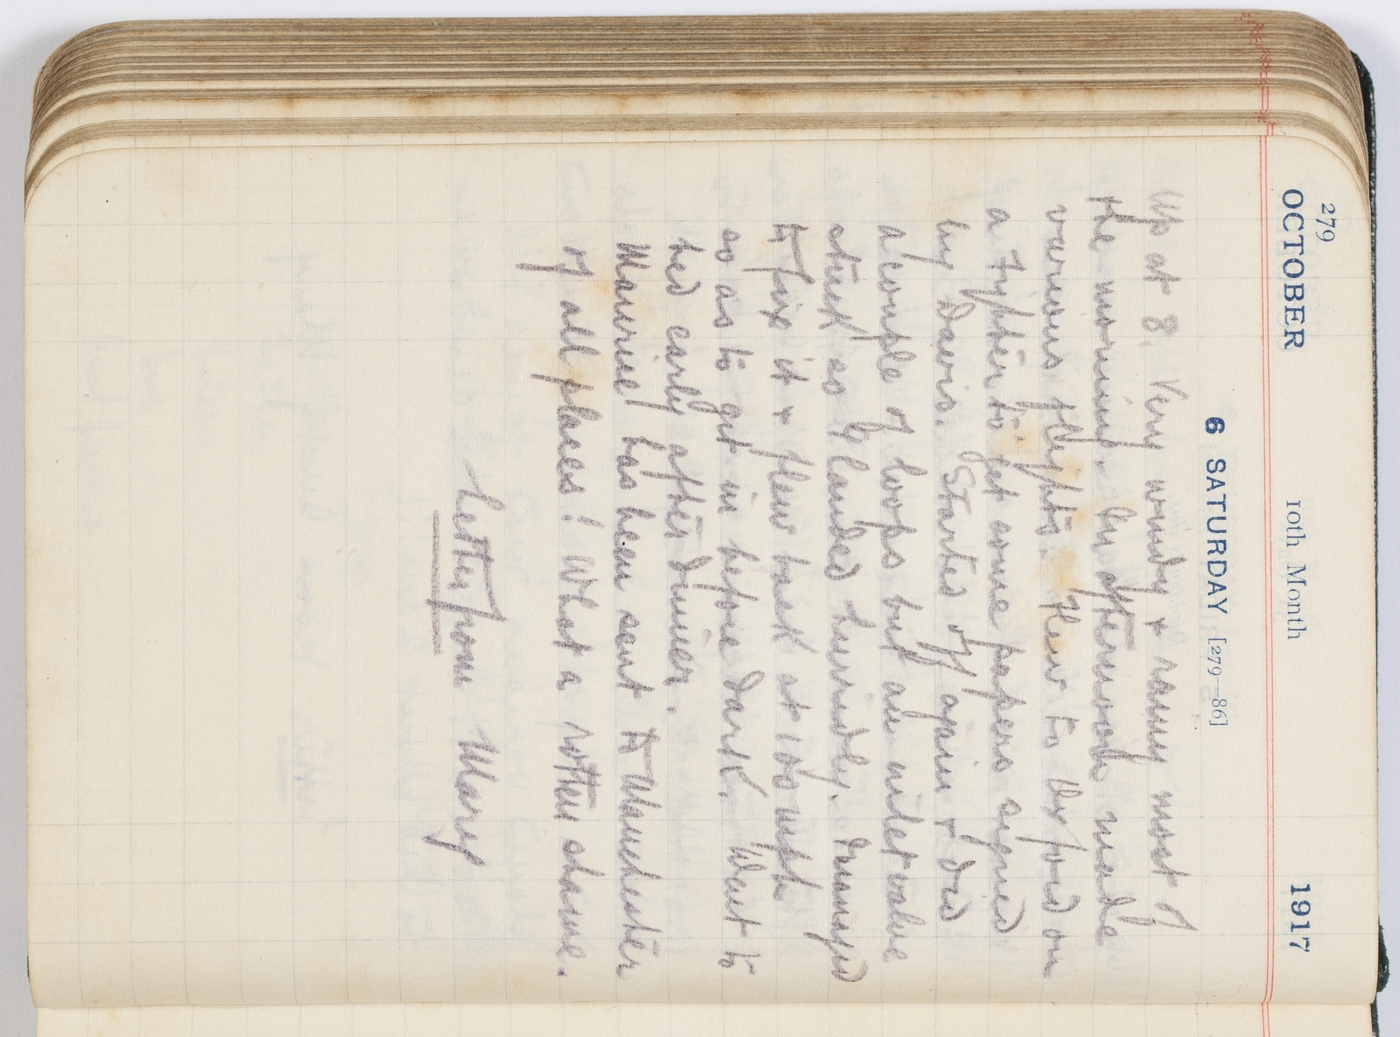 279
OCTOBER 10th Month 1917
6 SATURDAY [279—86]
Up at 8. Very windy & rainy most of
the morning. In afternoon made
various flights. Flew to Orford on
a fighter to get some papers signed
by Davis. Started off again & did
a couple of loops but an inlet valve
stuck so I landed hurriedly. Managed
to fix it & flew back at 100 mph
so as to get in before dark. Went to
bed early after dinner.
Maurice has been sent to Manchester
of all places! What a rotten shame.
Letter from Mary